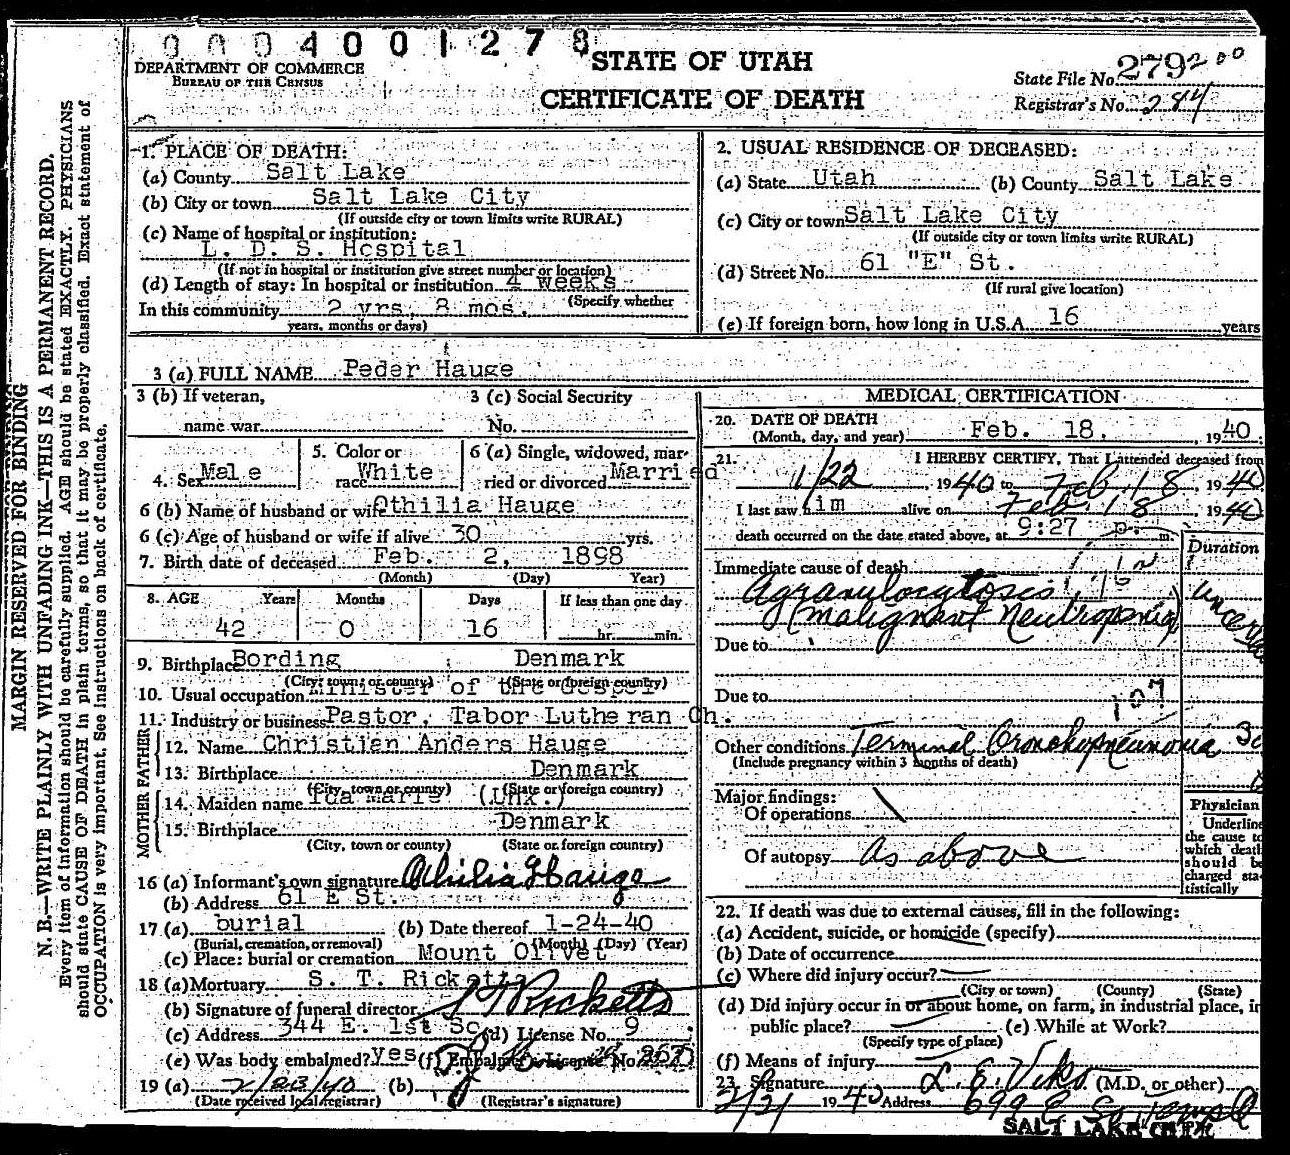 0004001278
DEPARTMENT OF COMMERCE
BUREAU OF THE CENSUS
STATE OF UTAH
CERTIFICATE OF DEATH
State File No. 279200
Registrar's No. 284
MARGIN RESERVED FOR BINDING
N. B.—WRITE PLAINLY WITH UNFADING INK—THIS IS A PERMANENT RECORD.
Every item of information should be carefully supplied. AGE should be stated EXACTLY. PHYSICIANS
should state CAUSE OF DEATH in plain terms, so that it may be properly classified. Exact statement of
OCCUPATION is very important. See instructions on back of certificate.
1. PLACE OF DEATH:
(a) County Salt Lake
(b) City or town Salt Lake City
(If outside city or town limits write RURAL)
(c) Name of hospital or institution:
L. D. S. Hospital
(If not in hospital or institution give street number or location)
(d) Length of stay: In hospital or institution 4 weeks
(Specify whether
In this community 2 yrs, 8 mos.
years, months or days)
2. USUAL RESIDENCE OF DECEASED:
(a) State Utah (b) County Salt Lake
(c) City or town Salt Lake City
(If outside city or town limits write RURAL)
(d) Street No. 61 "E" St.
(If rural give location)
(e) If foreign born, how long in U.S.A. 16 years
3 (a) FULL NAME Peder Hauge
3 (b) If veteran,
name war
3 (c) Social Security
No.
4. Sex Male
5. Color or
race White
6 (a) Single, widowed, mar-
ried or divorced Married
6 (b) Name of husband or wife Othilia Hauge
6 (c) Age of husband or wife if alive 30 yrs.
7. Birth date of deceased Feb. 2, 1898
(Month) (Day) Year)
8. AGE Years Months Days If less than one day
42 0 16 hr. min.
9. Birthplace Bording Denmark
(City, town, or county) (State or foreign country)
10. Usual occupation Minister of the Gospel
11. Industry or business Pastor, Tabor Lutheran Ch.
FATHER
12. Name Christian Anders Hauge
13. Birthplace Denmark
(City, town or county) (State or foreign country)
MOTHER
14. Maiden name Ida Marie (Unk.)
15. Birthplace Denmark
(City, town or county) (State or foreign country)
16 (a) Informant's own signature Othilia Hauge
(b) Address 61 E St.
17 (a) burial (b) Date thereof 1-24-40
(Burial, cremation, or removal) (Month) (Day) (Year)
(c) Place: burial or cremation Mount Olivet
18 (a) Mortuary S. T. Ricketts
(b) Signature of funeral director Ricketts
(c) Address 344 E. 1st So. (d) License No. 9
(e) Was body embalmed? yes (f) Embalmer's License No.
19 (a) 2/23/40 (b)
(Date received local registrar) (Registrar's signature)
MEDICAL CERTIFICATION
20. DATE OF DEATH
(Month, day, and year) Feb. 18, 1940
21. I HEREBY CERTIFY, That I attended deceased from
1/22, 1940 to Feb 18 1940
I last saw him alive on Feb. 18 1940
death occurred on the date stated above, at 9:27 p. m.
Duration
Immediate cause of death
Agranulocytosis
(malignant neutropenia)
Due to
Due to
107
Other conditions Terminal Bronchopneumonia
(Include pregnancy within 3 months of death)
Major findings:
Of operations
Of autopsy As above
Physician
Underline
the cause to
which death
should be
charged sta-
tistically
22. If death was due to external causes, fill in the following:
(a) Accident, suicide, or homicide (specify)
(b) Date of occurrence
(c) Where did injury occur?
(City or town) (County) (State)
(d) Did injury occur in or about home, on farm, in industrial place, in
public place? (e) While at Work?
(Specify type of place)
(f) Means of injury
23. Signature L. E. Viko (M.D. or other)
2/21 1940 Address 699 E So Temple
SALT LAKE CITY